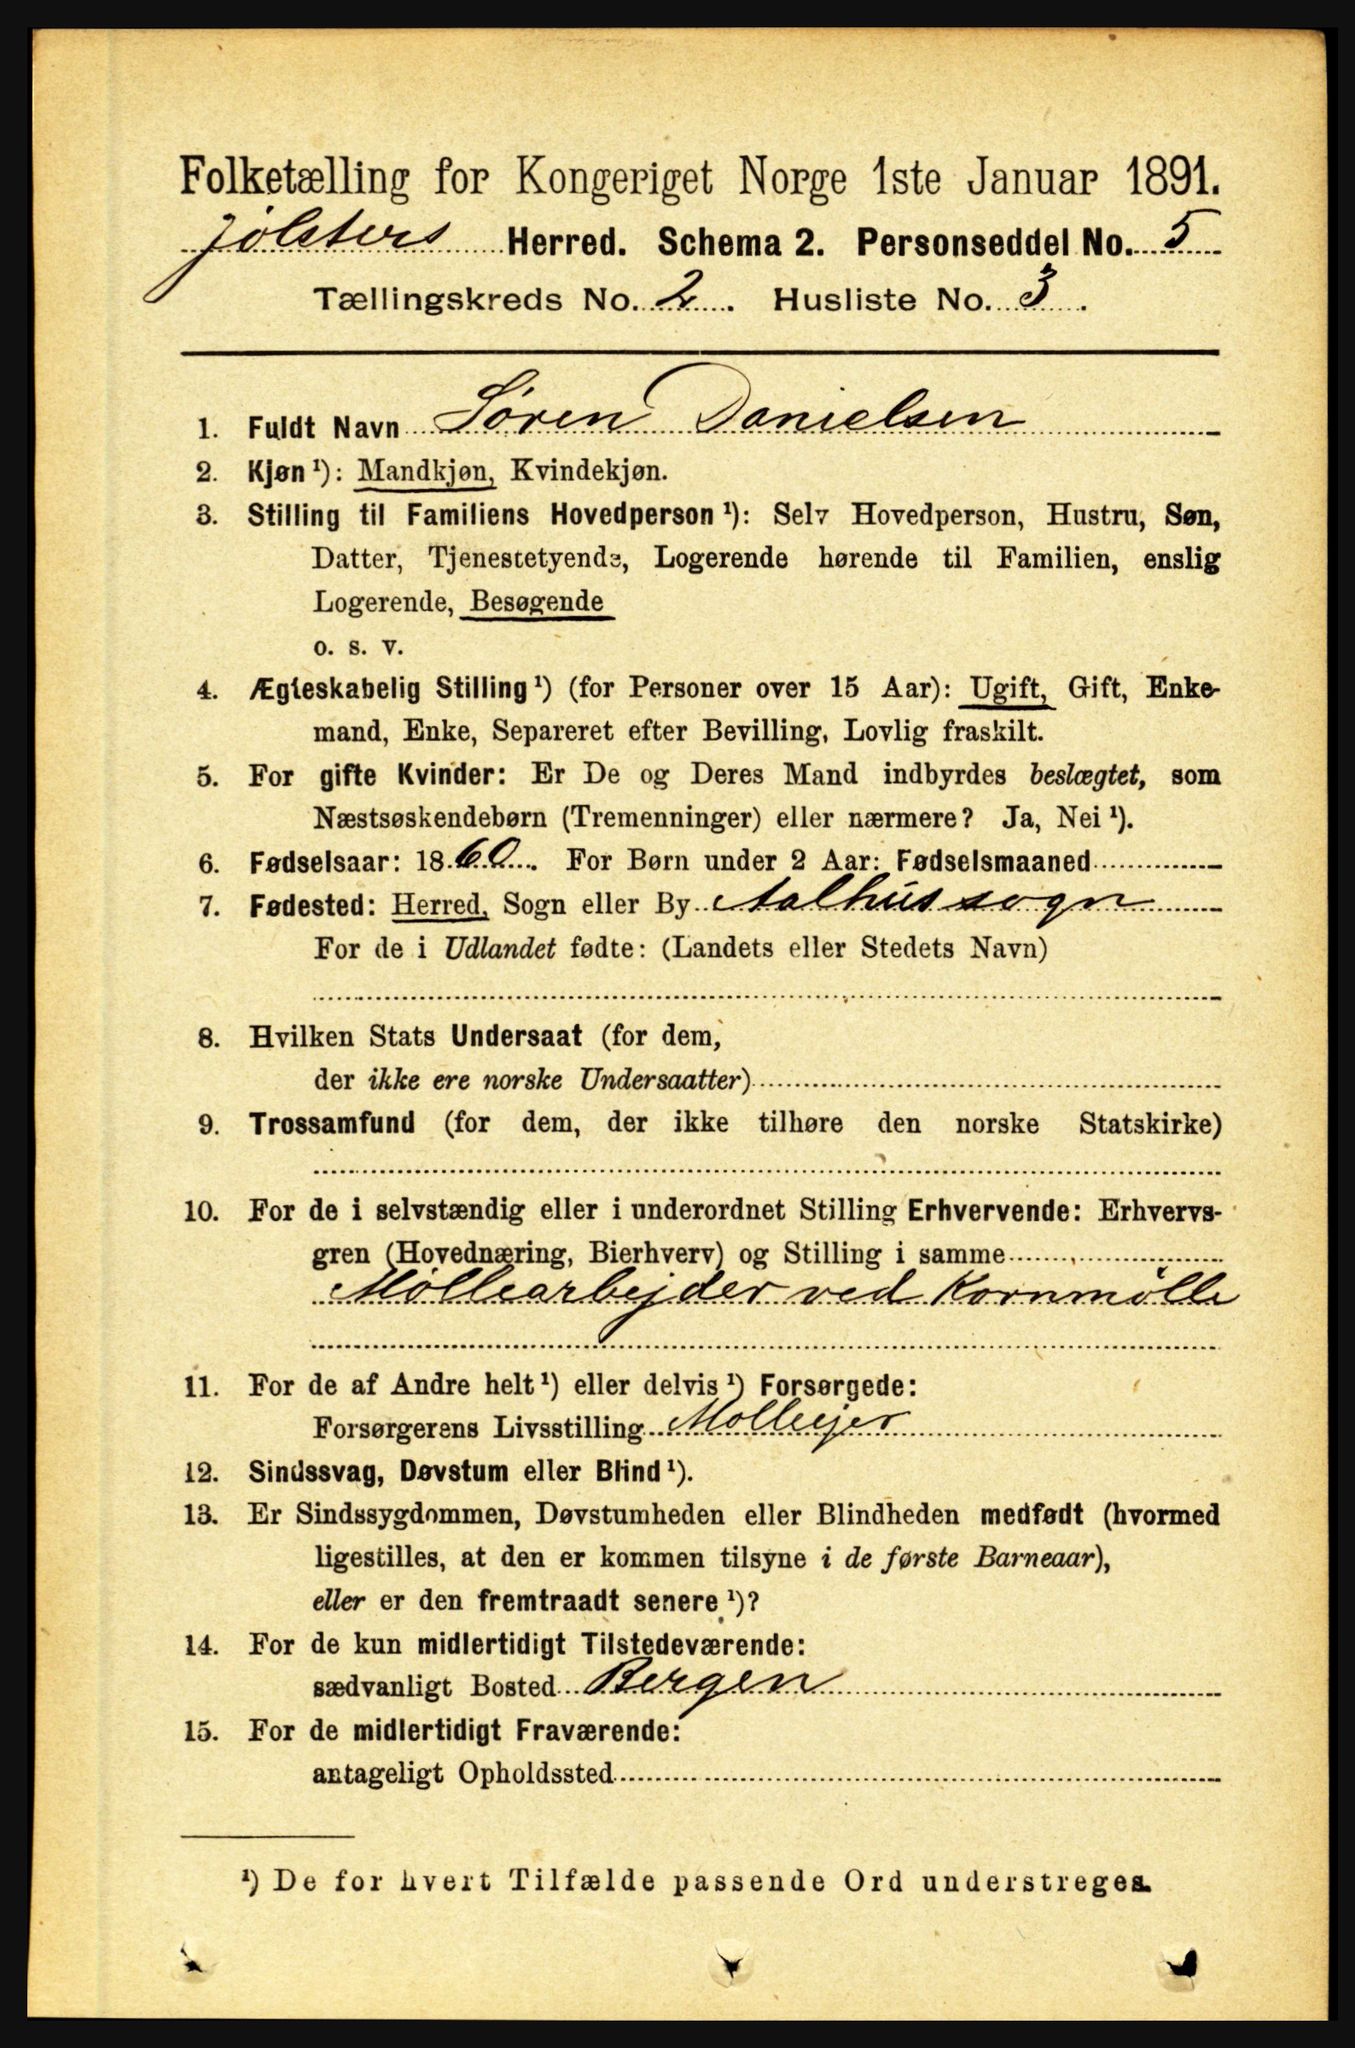 Folketælling for Kongeriget Norge 1ste Januar 1891.
Jølsters Herred. Schema 2. Personseddel No. 5
Tællingskreds No. 2. Husliste No. 3.
1. Fuldt Navn Søren Danielsen
2. Kjøn¹): Mandkjøn, Kvindekjøn.
3. Stilling til Familiens Hovedperson¹): Selv Hovedperson, Hustru, Søn,
Datter, Tjenestetyende, Logerende hørende til Familien, enslig
Logerende, Besøgende
o. s. v.
4. Ægteskabelig Stilling¹) (for Personer over 15 Aar): Ugift, Gift, Enke-
mand, Enke, Separeret efter Bevilling, Lovlig fraskilt.
5. For gifte Kvinder: Er De og Deres Mand indbyrdes beslægtet, som
Næstsøskendebørn (Tremenninger) eller nærmere? Ja, Nei¹).
6. Fødselsaar: 1860. For Børn under 2 Aar: Fødselsmaaned
7. Fødested: Herred, Sogn eller By Aalhus sogn
For de i Udlandet fødte: (Landets eller Stedets Navn)
8. Hvilken Stats Undersaat (for dem,
der ikke ere norske Undersaatter)
9. Trossamfund (for dem, der ikke tilhøre den norske Statskirke)
10. For de i selvstændig eller i underordnet Stilling Erhvervende: Erhvervs-
gren (Hovednæring, Bierhverv) og Stilling i samme
Møllearbejder ved Kornmølle
11. For de af Andre helt¹) eller delvis¹) Forsørgede:
Forsørgerens Livsstilling Mølleejer
12. Sindssvag, Døvstum eller Blind¹).
13. Er Sindssygdommen, Døvstumheden eller Blindheden medfødt (hvormed
ligestilles, at den er kommen tilsyne i de første Barneaar),
eller er den fremtraadt senere¹)?
14. For de kun midlertidigt Tilstedeværende:
sædvanligt Bosted Bergen
15. For de midlertidigt Fraværende:
antageligt Opholdssted
¹) De for hvert Tilfælde passende Ord understreges.